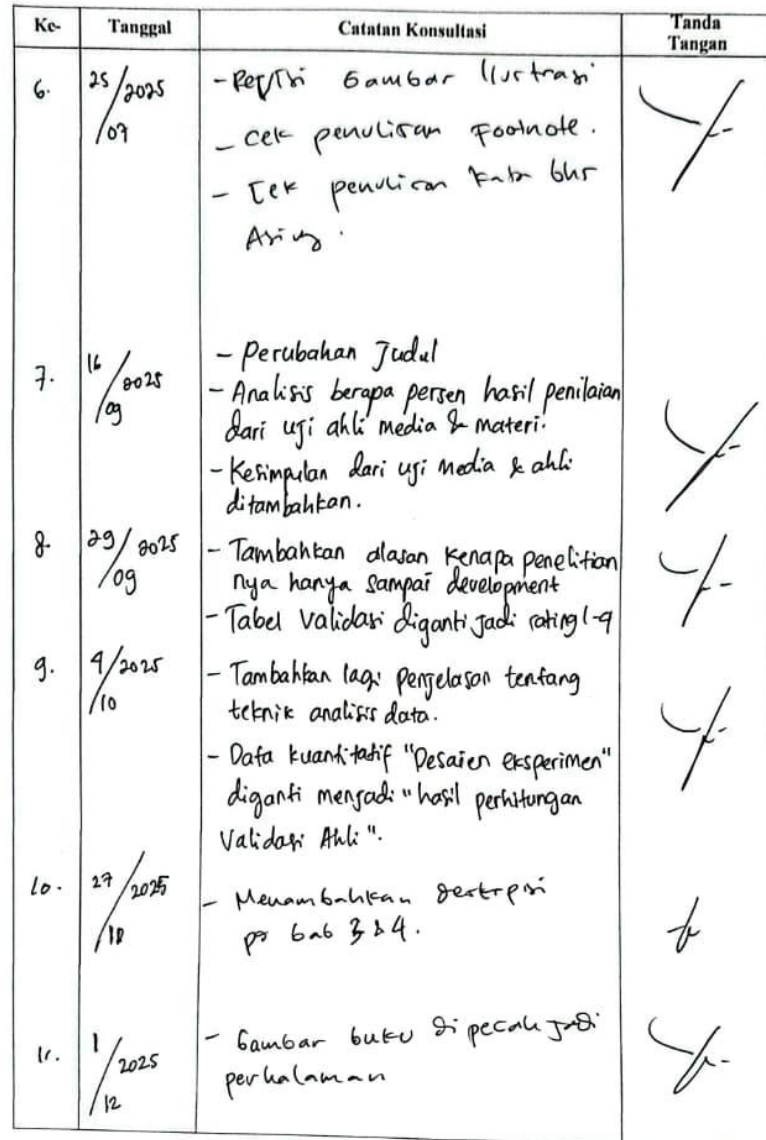 Ke- Tanggal Catatan Konsultasi Tanda Tangan
6. 25/2025/07 - Revisi Gambar Ilustrasi
- Cek penulisan Footnote.
- Cek penulisan kata bhs
Asing.
7. 16/2025/09 - Perubahan Judul
- Analisis berapa persen hasil penilaian
dari uji ahli media & materi.
- Kesimpulan dari uji media & ahli
ditambahkan.
8. 29/2025/09 - Tambahkan alasan kenapa penelitian
nya hanya sampai development
- Tabel validasi diganti jadi rating 1-4
9. 4/2025/10 - Tambahkan lagi penjelasan tentang
teknik analisis data.
- Data kuantitatif "Desaien eksperimen"
diganti menjadi "hasil perhitungan
Validasi Ahli".
10. 27/2025/10 - Menambahkan deskripsi
pd bab 3 & 4.
11. 1/2025/12 - Gambar buku dipecah jadi
perhalaman